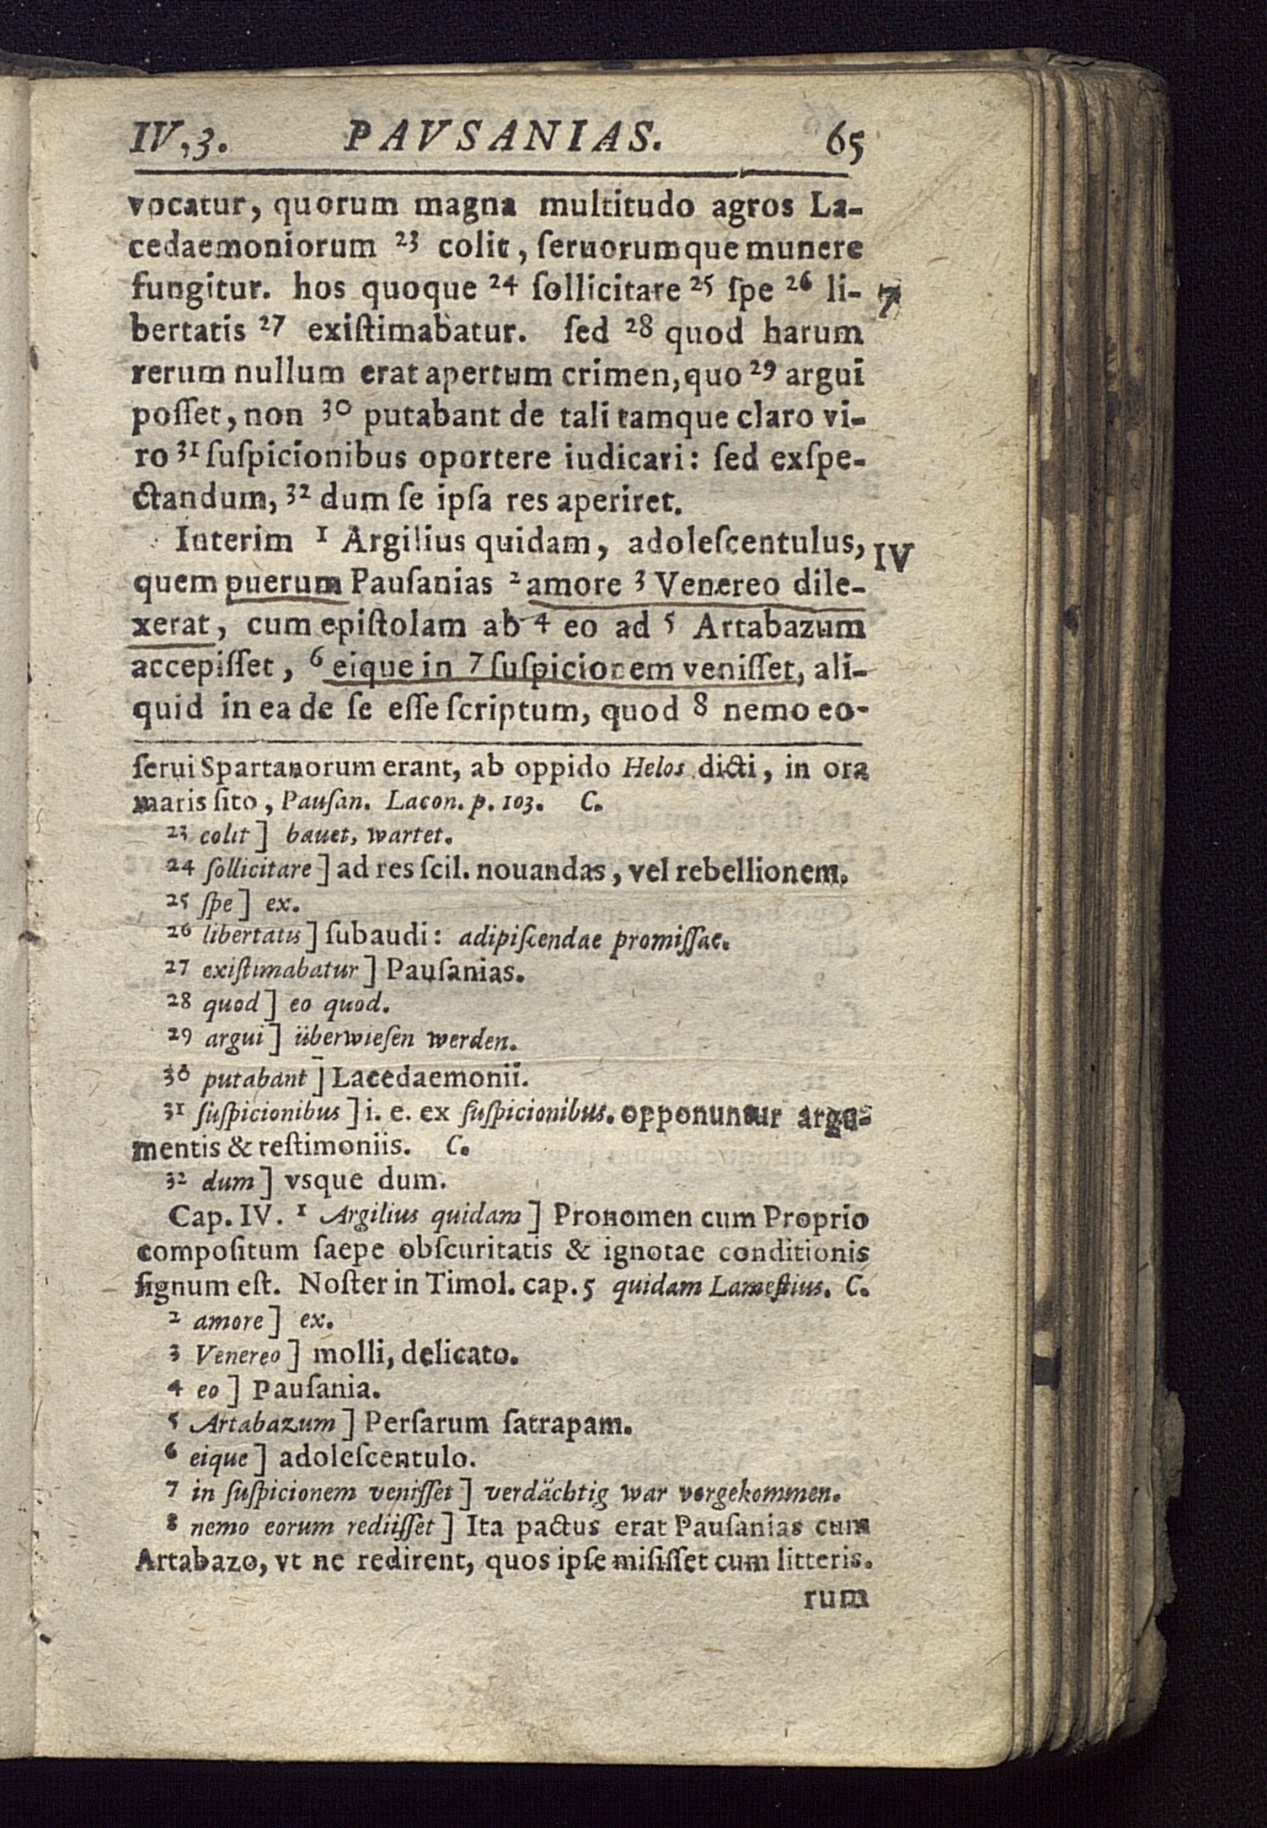 IV,3. PAVSANIAS. 65
vocatur, quorum magna multitudo agros La-
cedaemoniorum 23 colit, ſeruorumque munere
fungitur. hos quoque 24 ſollicitare 25 ſpe 26 li- 7
bertatis 27 exiſtimabatur. ſed 28 quod harum
rerum nullum erat apertum crimen, quo 29 argui
poſſet, non 30 putabant de tali tamque claro vi-
ro 31 ſuſpicionibus oportere iudicari: ſed exſpe-
ctandum, 32 dum ſe ipſa res aperiret.
Interim 1 Argilius quidam, adoleſcentulus, IV
quem puerum Pauſanias 2 amore 3 Venereo dile-
xerat, cum epiſtolam ab 4 eo ad 5 Artabazum
accepiſſet, 6 eique in 7 ſuſpicionem veniſſet, ali-
quid in ea de ſe eſſe ſcriptum, quod 8 nemo eo-
ſerui Spartanorum erant, ab oppido Helos dicti, in ora
maris ſito, Pauſan. Lacon. p. 103. C.
23 colit] bauet, wartet.
24 ſollicitare] ad res ſcil. nouandas, vel rebellionem.
25 ſpe] ex.
26 libertatis] ſubaudi: adipiſcendae promiſſae.
27 exiſtimabatur] Pauſanias.
28 quod] eo quod.
29 argui] überwieſen werden.
30 putabant] Lacedaemonii.
31 ſuſpicionibus] i. e. ex ſuſpicionibus. opponuntur argu-
mentis & teſtimoniis. C.
32 dum] vsque dum.
Cap. IV. 1 Argilius quidam] Pronomen cum Proprio
compoſitum ſaepe obſcuritatis & ignotae conditionis
ſignum eſt. Noſter in Timol. cap. 5 quidam Lameſtius. C.
2 amore] ex.
3 Venereo] molli, delicato.
4 eo] Pauſania.
5 Artabazum] Perſarum ſatrapam.
6 eique] adoleſcentulo.
7 in ſuſpicionem veniſſet] verdächtig war vorgekommen.
8 nemo eorum rediiſſet] Ita pactus erat Pauſanias cum
Artabazo, vt ne redirent, quos ipſe miſiſſet cum litteris.
rum